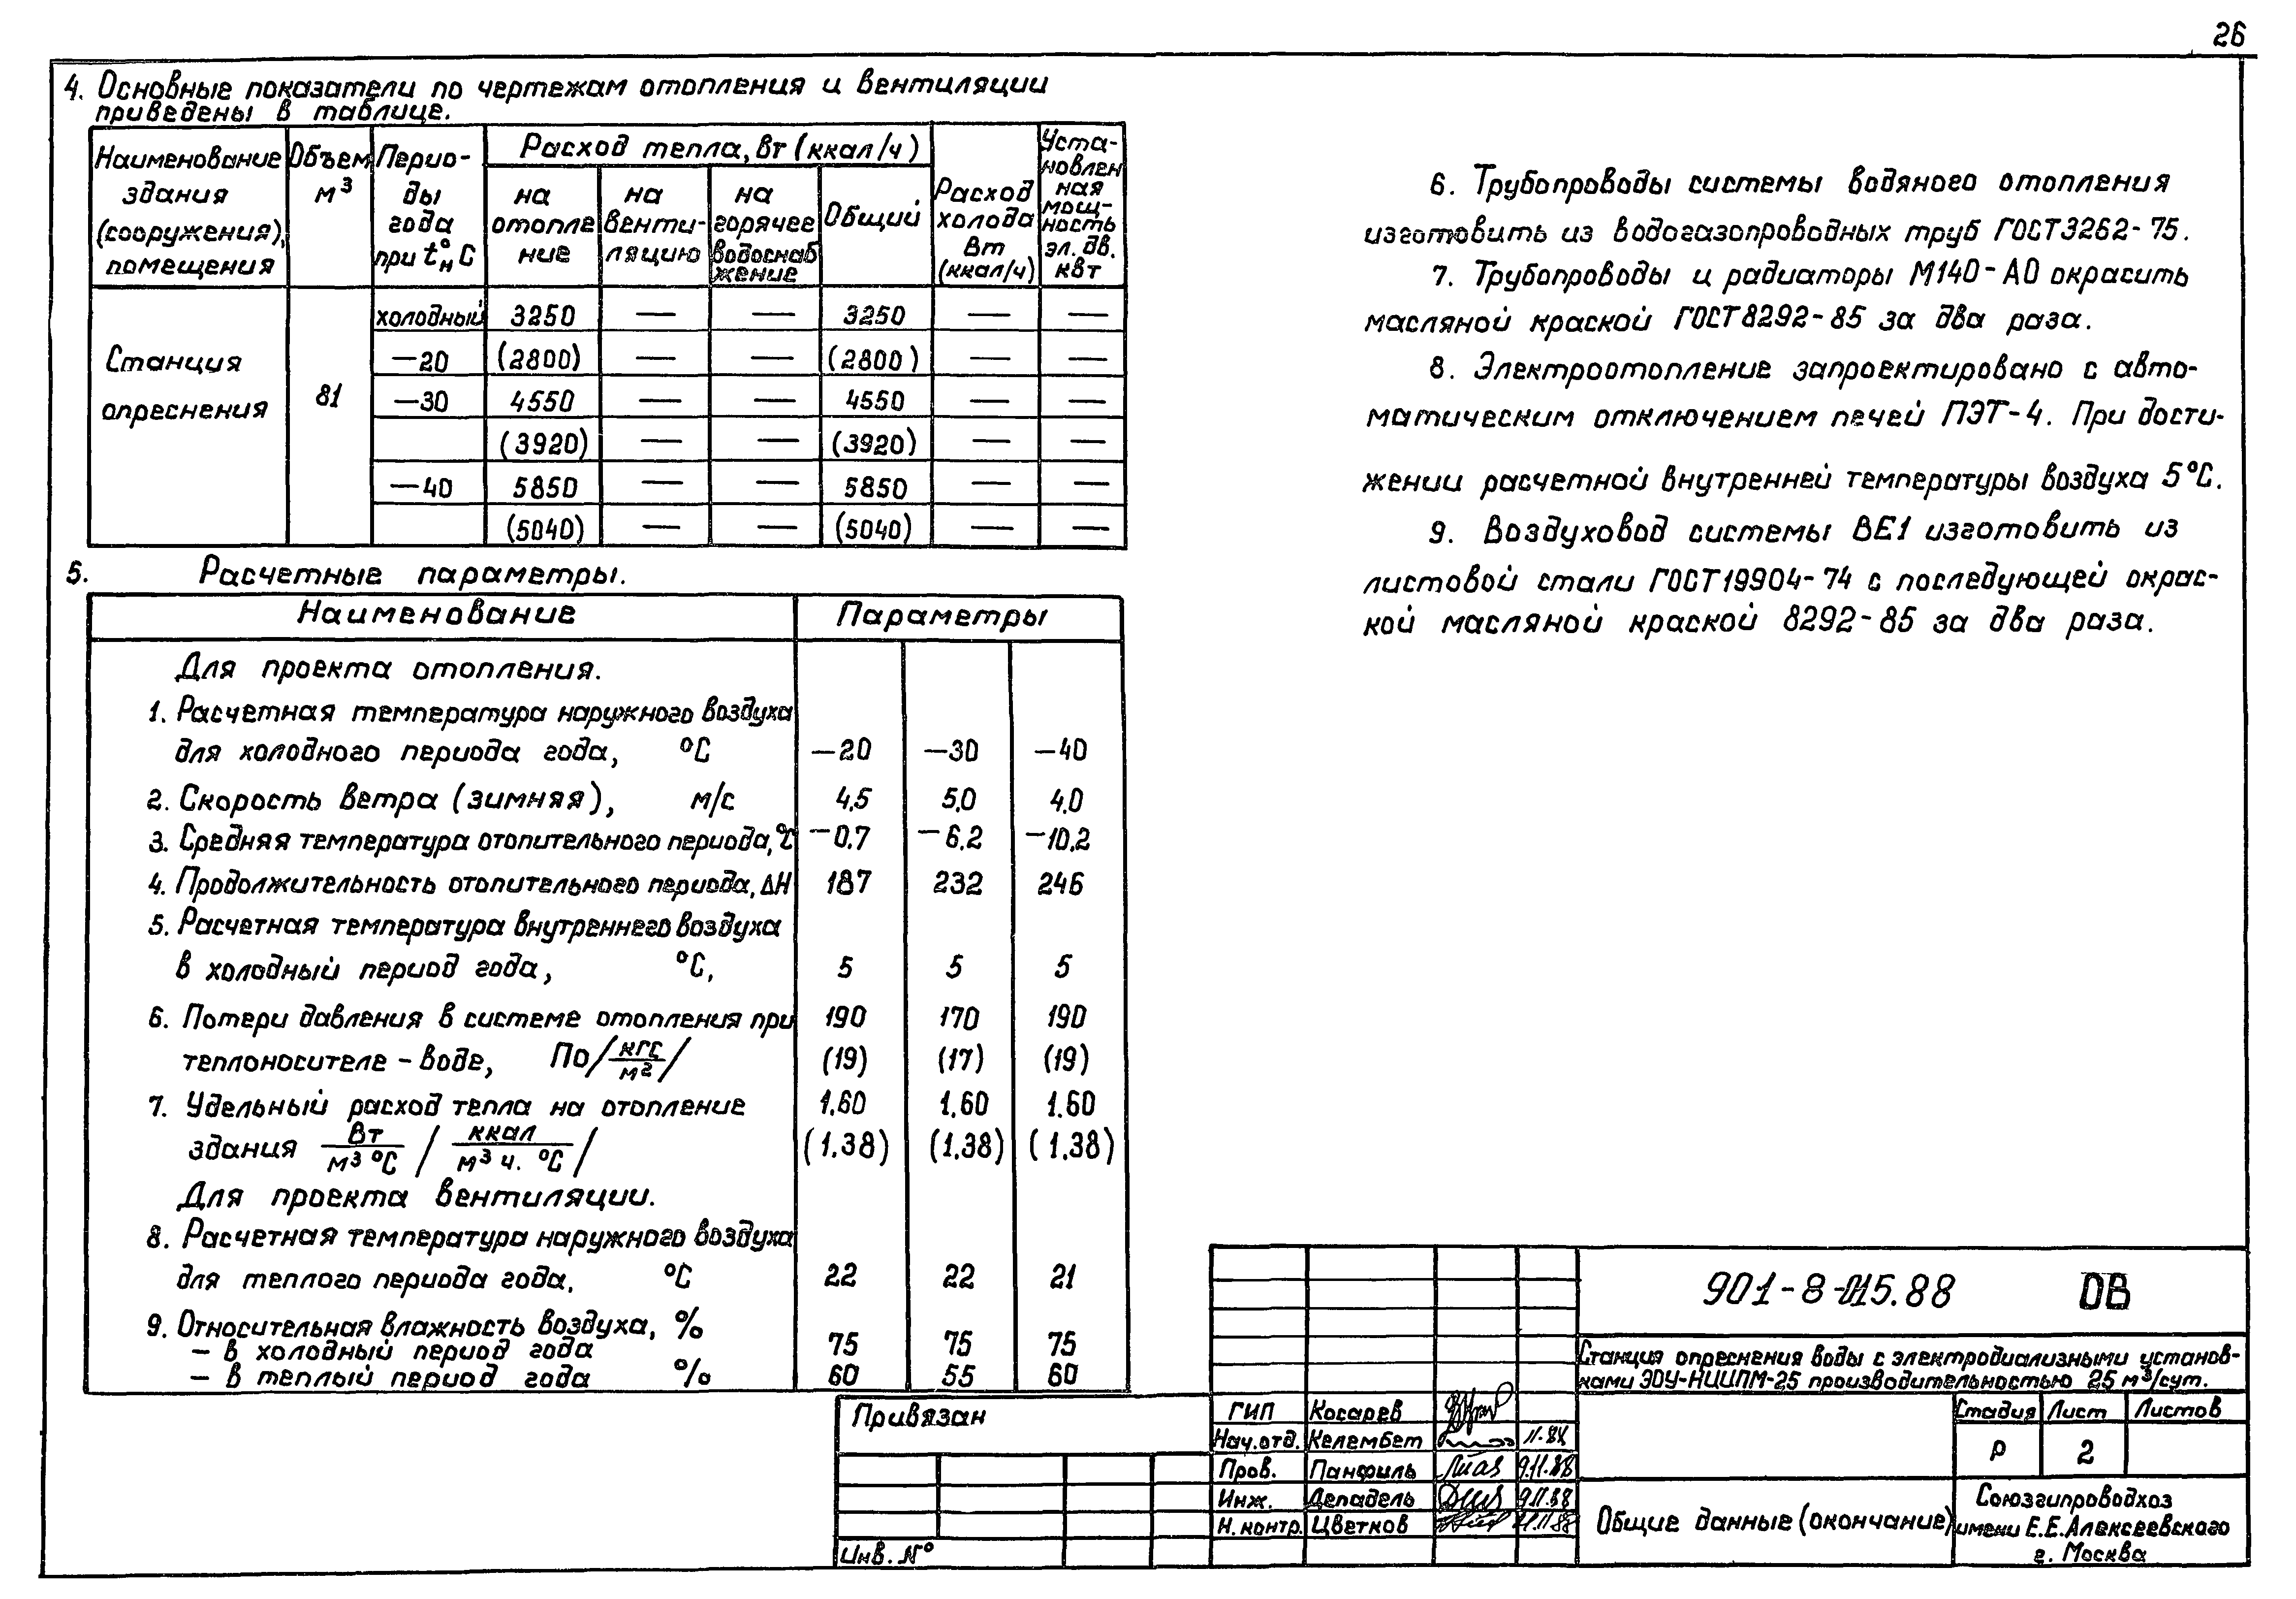 26
4. Основные показатели по чертежам отопления и вентиляции
приведены в таблице.
Наименование здания (сооружения), помещения
Объем м³
Перио-ды года при tн°С
Расход тепла, Вт (ккал/ч)
на отопле ние
на венти-ляцию
на горячее водоснаб жение
Общий
Расход холода Вт (ккал/ч)
Уста-новлен ная мощ-ность эл. дв. кВт
Станция опреснения
81
холодный 3250 — — 3250 — —
—20 (2800) — — (2800) — —
—30 4550 — — 4550 — —
(3920) — — (3920) — —
—40 5850 — — 5850 — —
(5040) — — (5040) — —
5. Расчетные параметры.
Наименование Параметры
Для проекта отопления.
1. Расчетная температура наружного воздуха
для холодного периода года, °С —20 —30 —40
2. Скорость ветра (зимняя), м/с 4,5 5,0 4,0
3. Средняя температура отопительного периода, °С —0,7 —6,2 —10,2
4. Продолжительность отопительного периода, ДН 187 232 246
5. Расчетная температура внутреннего воздуха
в холодный период года, °С, 5 5 5
6. Потери давления в системе отопления при 190 170 190
теплоносителе – воде, По/кгс/м²/ (19) (17) (19)
7. Удельный расход тепла на отопление 1.60 1.60 1.60
здания Вт/м³ °С / ккал/м³ ч. °С / (1.38) (1.38) (1.38)
Для проекта вентиляции.
8. Расчетная температура наружного воздуха
для теплого периода года. °С 22 22 21
9. Относительная влажность воздуха, %
– в холодный период года 75 75 75
– в теплый период года % 60 55 60
6. Трубопроводы системы водяного отопления
изготовить из водогазопроводных труб ГОСТ3262-75.
7. Трубопроводы и радиаторы М140-АО окрасить
масляной краской ГОСТ8292-85 за два раза.
8. Электроотопление запроектировано с авто-
матическим отключением печей ПЭТ-4. При дости-
жении расчетной внутренней температуры воздуха 5°С.
9. Воздуховод системы ВЕ1 изготовить из
листовой стали ГОСТ19904-74 с последующей окрас-
кой масляной краской 8292-85 за два раза.
Привязан
Инв. №
901-8-015.88 ОВ
Станция опреснения воды с электродиализными установ-
ками ЭОУ-НИИПМ-25 производительностью 25 м³/сут.
ГИП Косарев
Нач.отд. Келембет 11.88
Пров. Панфиль 9.11.88
Инж. Депадель 9.11.88
Н. контр. Цветков 21.11.88
Стадия Лист Листов
Р 2
Общие данные (окончание)
Союзгипроводхоз
имени Е.Е.Алексеевского
г. Москва